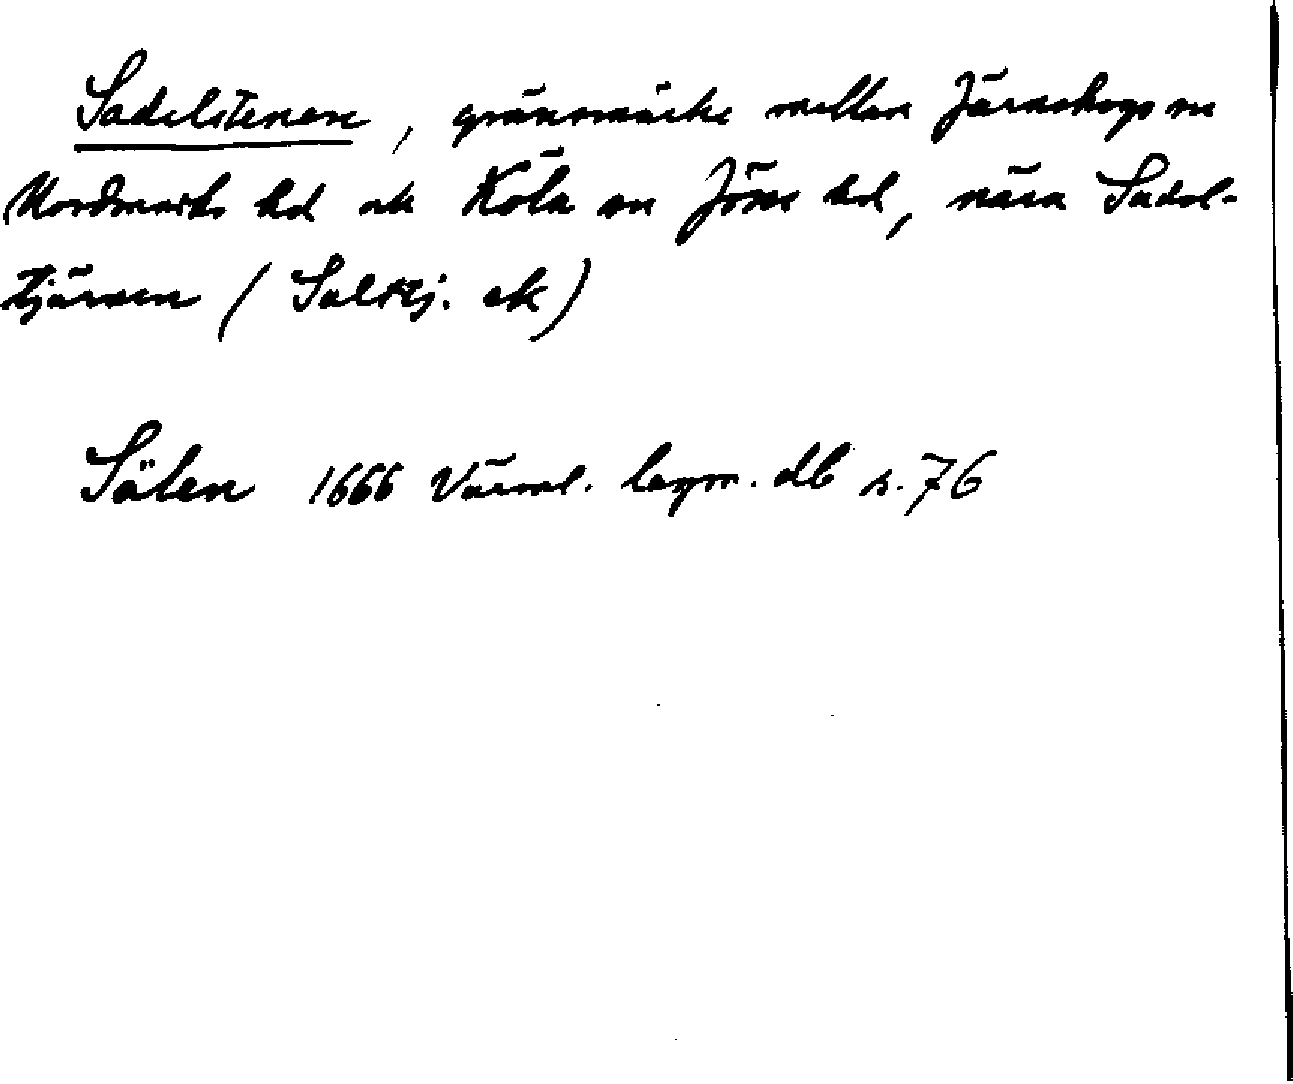 Sadelstenen, gränsmärke mellan Järnskogs sn
Nordmarks hd ock Köla sn Jösse hd, nära Sadel-
tjärnen (Saltj. ek)
Sälen 1666 Värml. lagm. db s. 76